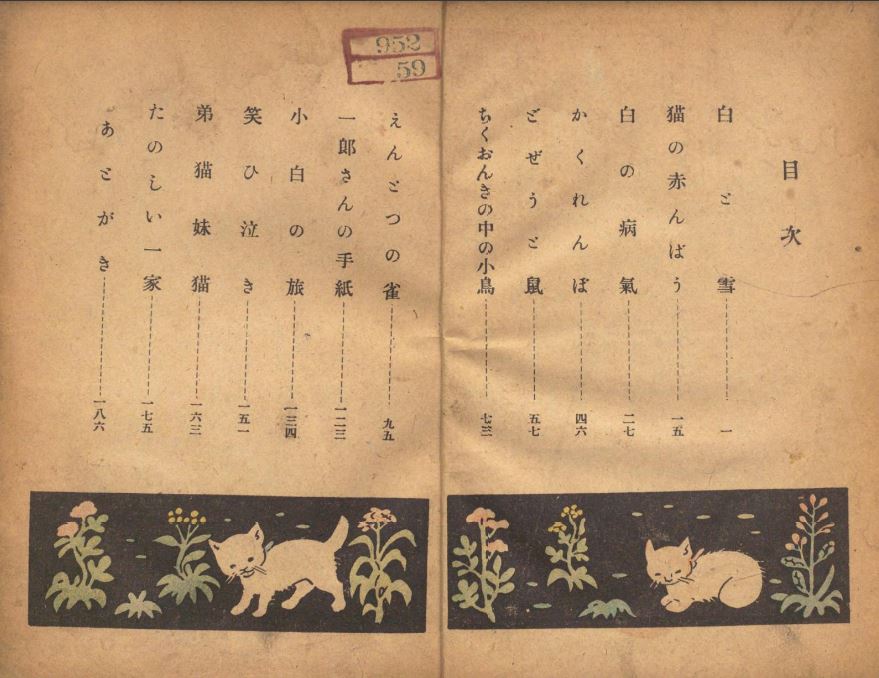 目次
白と雪 一
猫の赤んばう 一五
白の病氣 二七
かくれんぼ 四六
どぜうと鼠 五七
ちくおんきの中の小鳥 七三
えんとつの雀 九五
一郎さんの手紙 一二三
小白の旅 一三四
笑ひ泣き 一五一
弟猫妹猫 一六三
たのしい一家 一七五
あとがき 一八六
952
59